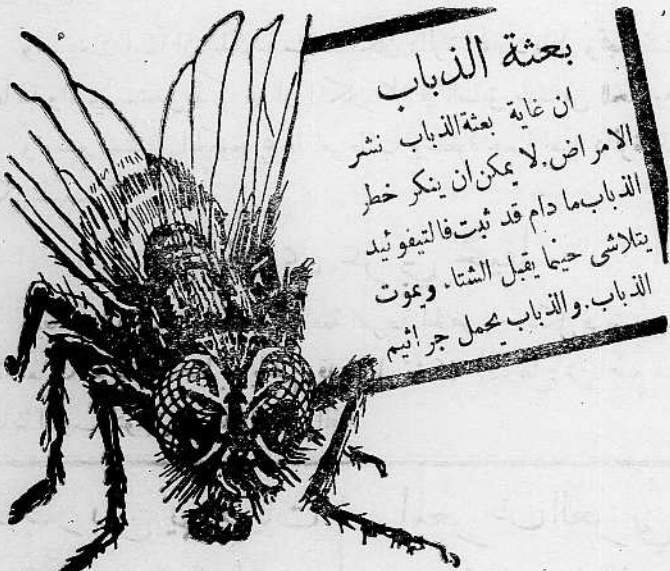 بعثة الذباب
ان غاية بعثة الذباب نشر
الامراض. لا يمكن ان ينكر خطر
الذباب ما دام قد ثبت فالتيفوئيد
يتلاشى حينما يقبل الشتاء ويموت
الذباب. والذباب يحمل جراثيم